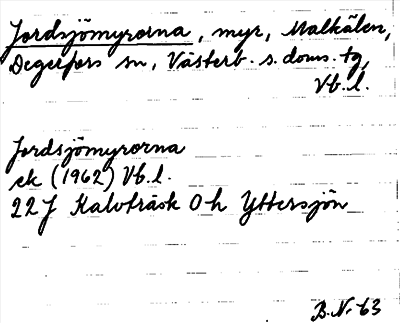 Jordsjömyrorna, myr, Malkälen,
Degerfors sn, Västerb. s. doms. tg,
Vb. l.
Jordsjömyrorna
ek (1962) Vb. l.
22 J Kalvträsk 0 h Yttersjön
B. N. 63